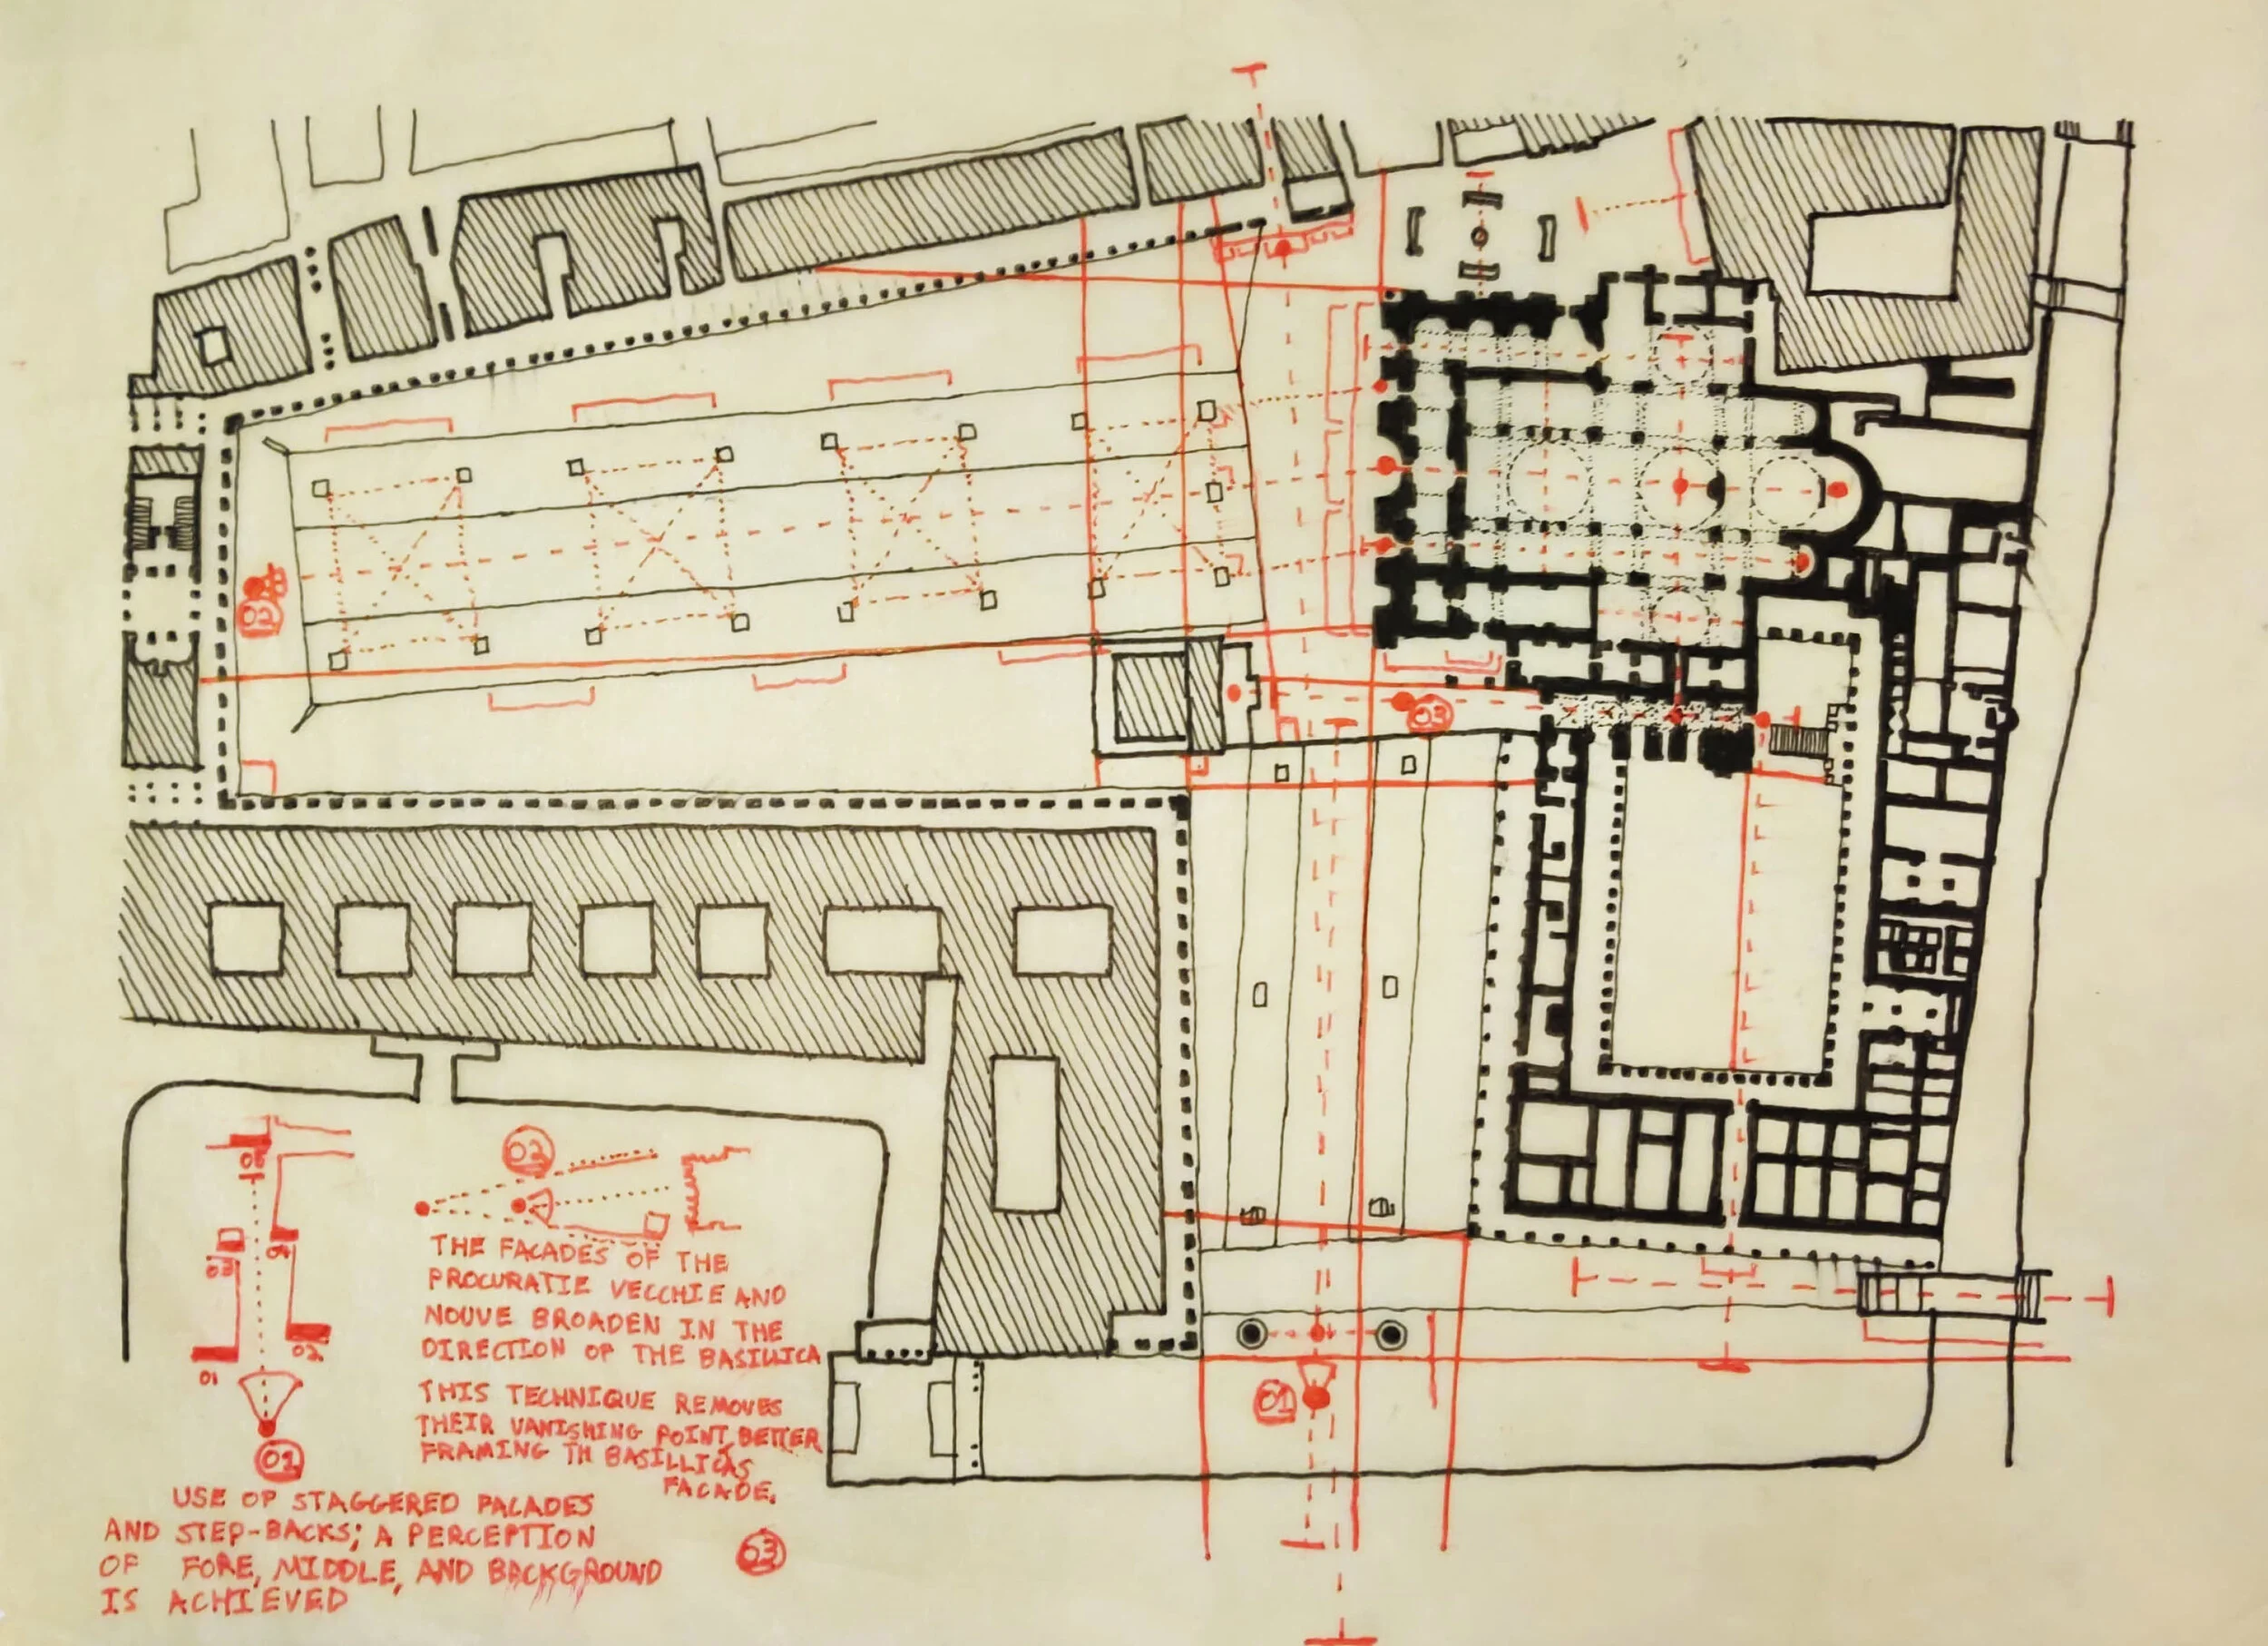 02
03
01
05
03
04
01
02
01
USE OF STAGGERED FACADES
AND STEP-BACKS; A PERCEPTION
OF FORE, MIDDLE, AND BACKGROUND
IS ACHIEVED
02
THE FACADES OF THE
PROCURATIE VECCHIE AND
NOUVE BROADEN IN THE
DIRECTION OF THE BASILICA
THIS TECHNIQUE REMOVES
THEIR VANISHING POINT, BETTER
FRAMING TH BASILLICAS
FACADE.
03